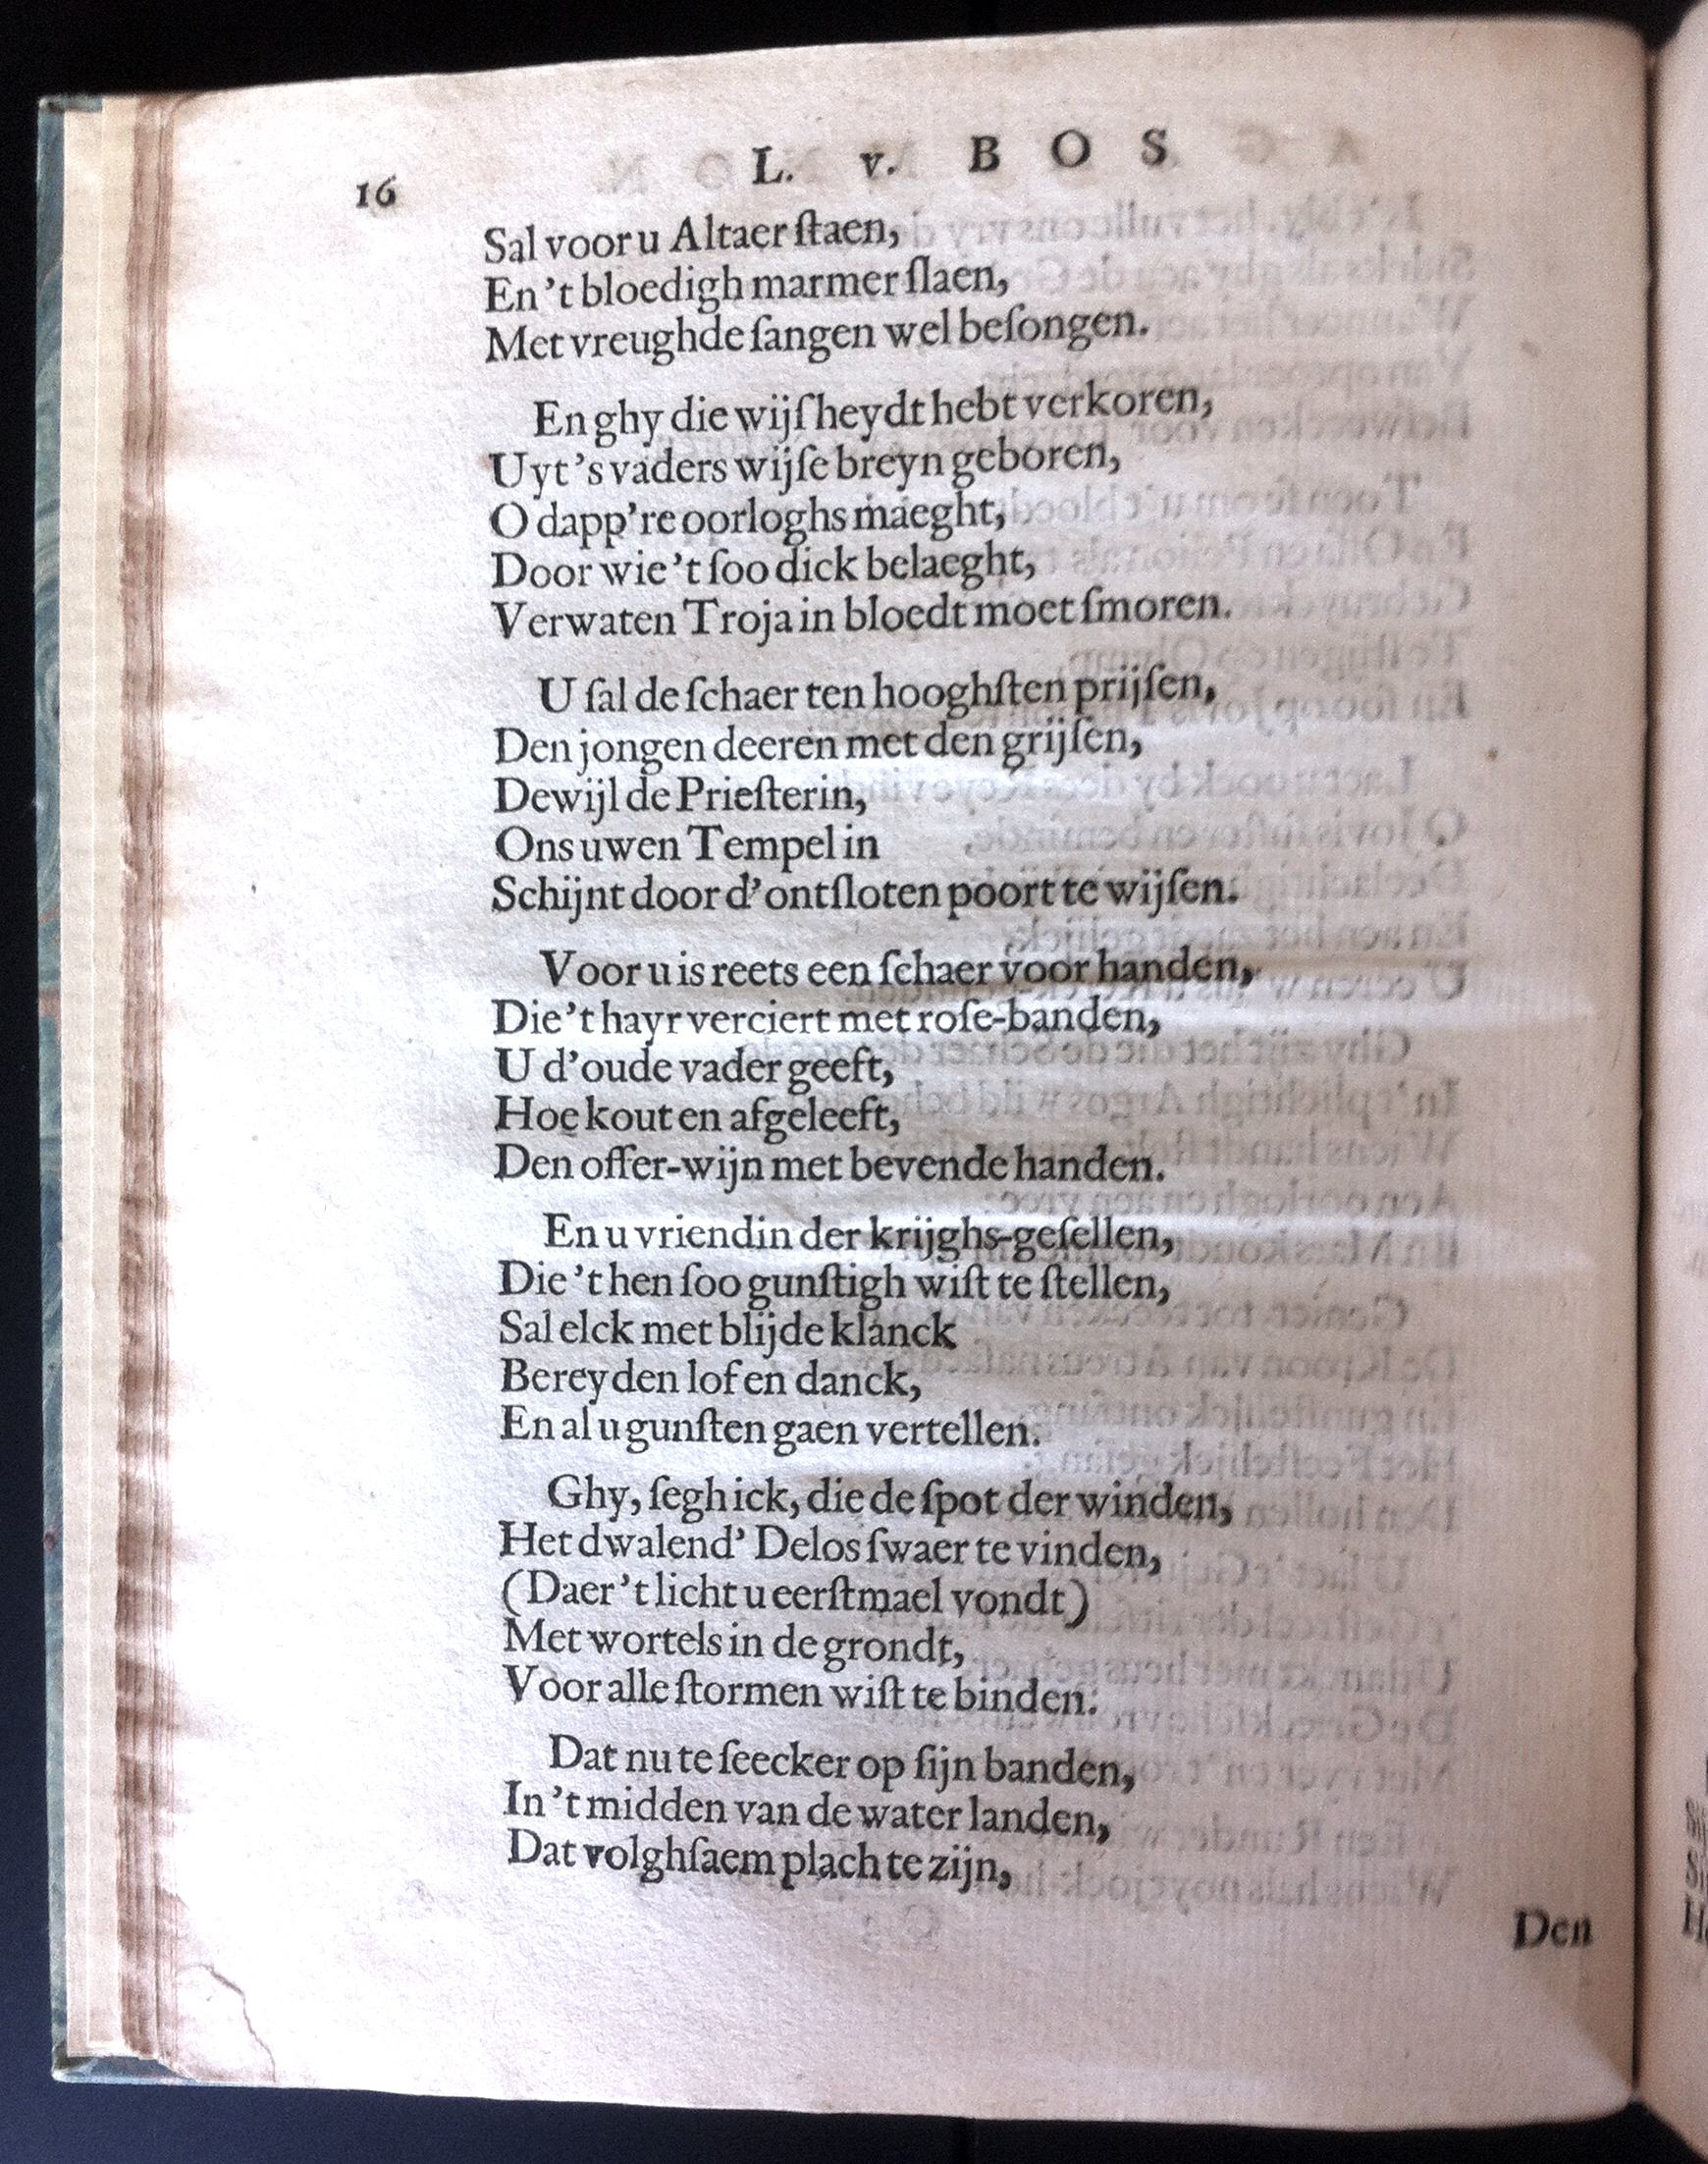 16 L. v. BOS
Sal voor u Altaer ſtaen,
En 't bloedigh marmer ſlaen,
Met vreughde ſangen wel beſongen.
En ghy die wijſheydt hebt verkoren,
Uyt 's vaders wijſe breyn geboren,
O dapp're oorloghs maeght,
Door wie 't ſoo dick belaeght,
Verwaten Troja in bloedt moet ſmoren.
U ſal de ſchaer ten hooghſten prijſen,
Den jongen deeren met den grijſen,
Dewijl de Prieſterin,
Ons uwen Tempel in
Schijnt door d'ontſloten poort te wijſen.
Voor u is reets een ſchaer voor handen,
Die 't hayr verciert met roſe-banden,
U d'oude vader geeft,
Hoe kout en afgeleeft,
Den offer-wijn met bevende handen.
En u vriendin der krijghs-geſellen,
Die 't hen ſoo gunſtigh wiſt te ſtellen,
Sal elck met blijde klanck
Bereyden lof en danck,
En al u gunſten gaen vertellen.
Ghy, ſegh ick, die de ſpot der winden,
Het dwalend' Delos ſwaer te vinden,
(Daer 't licht u eerſtmael vondt)
Met wortels in de grondt,
Voor alle ſtormen wiſt te binden.
Dat nu te ſeecker op ſijn banden,
In 't midden van de water landen,
Dat volghſaem plach te zijn,
Den